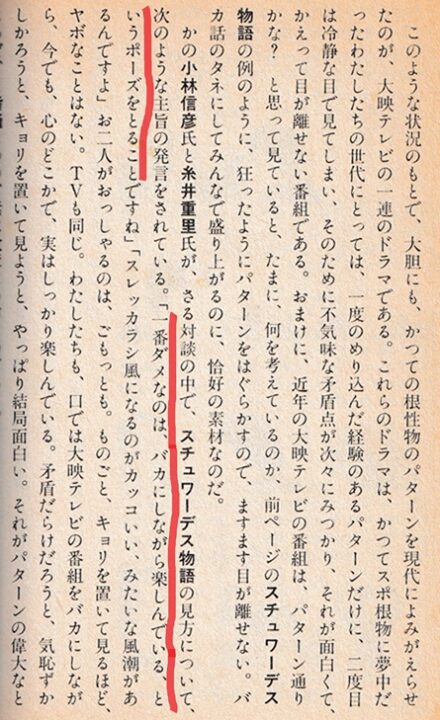 このような状況のもとで、大胆にも、かつての根性物のパターンを現代によみがえらせ
たのが、大映テレビの一連のドラマである。これらのドラマは、かつてスポ根物に夢中だ
ったわたしたちの世代にとっては、一度のめり込んだ経験のあるパターンだけに、二度目
は冷静な目で見てしまい、そのために不気味な矛盾点が次々にみつかり、それが面白くて、
かえって目が離せない番組である。おまけに、近年の大映テレビの番組は、パターン通り
かな?と思って見ていると、たまに、何を考えているのか、前ページのスチュワーデス
物語の例のように、狂ったようにパターンをはぐらかすので、ますます目が離せない。バ
カ話のタネにしてみんなで盛り上がるのに、恰好の素材なのだ。
かの小林信彦氏と糸井重里氏が、さる対談の中で、スチュワーデス物語の見方について、
次のような主旨の発言をされている。「一番ダメなのは、バカにしながら楽しんでいる、と
いうポーズをとることですね」「スレッカラシ風になるのがカッコいい、みたいな風潮があ
るんですよ」お二人がおっしゃるのは、ごもっとも。ものごと、キョリを置いて見るほど、
ヤボなことはない。TVも同じ。わたしたちも、口では大映テレビの番組をバカにしなが
ら、今でも、心のどこかで、実はしっかり楽しんでいる。矛盾だらけだろうと、気恥ずか
しかろうと、キョリを置いて見ようと、やっぱり結局面白い。それがパターンの偉大なと